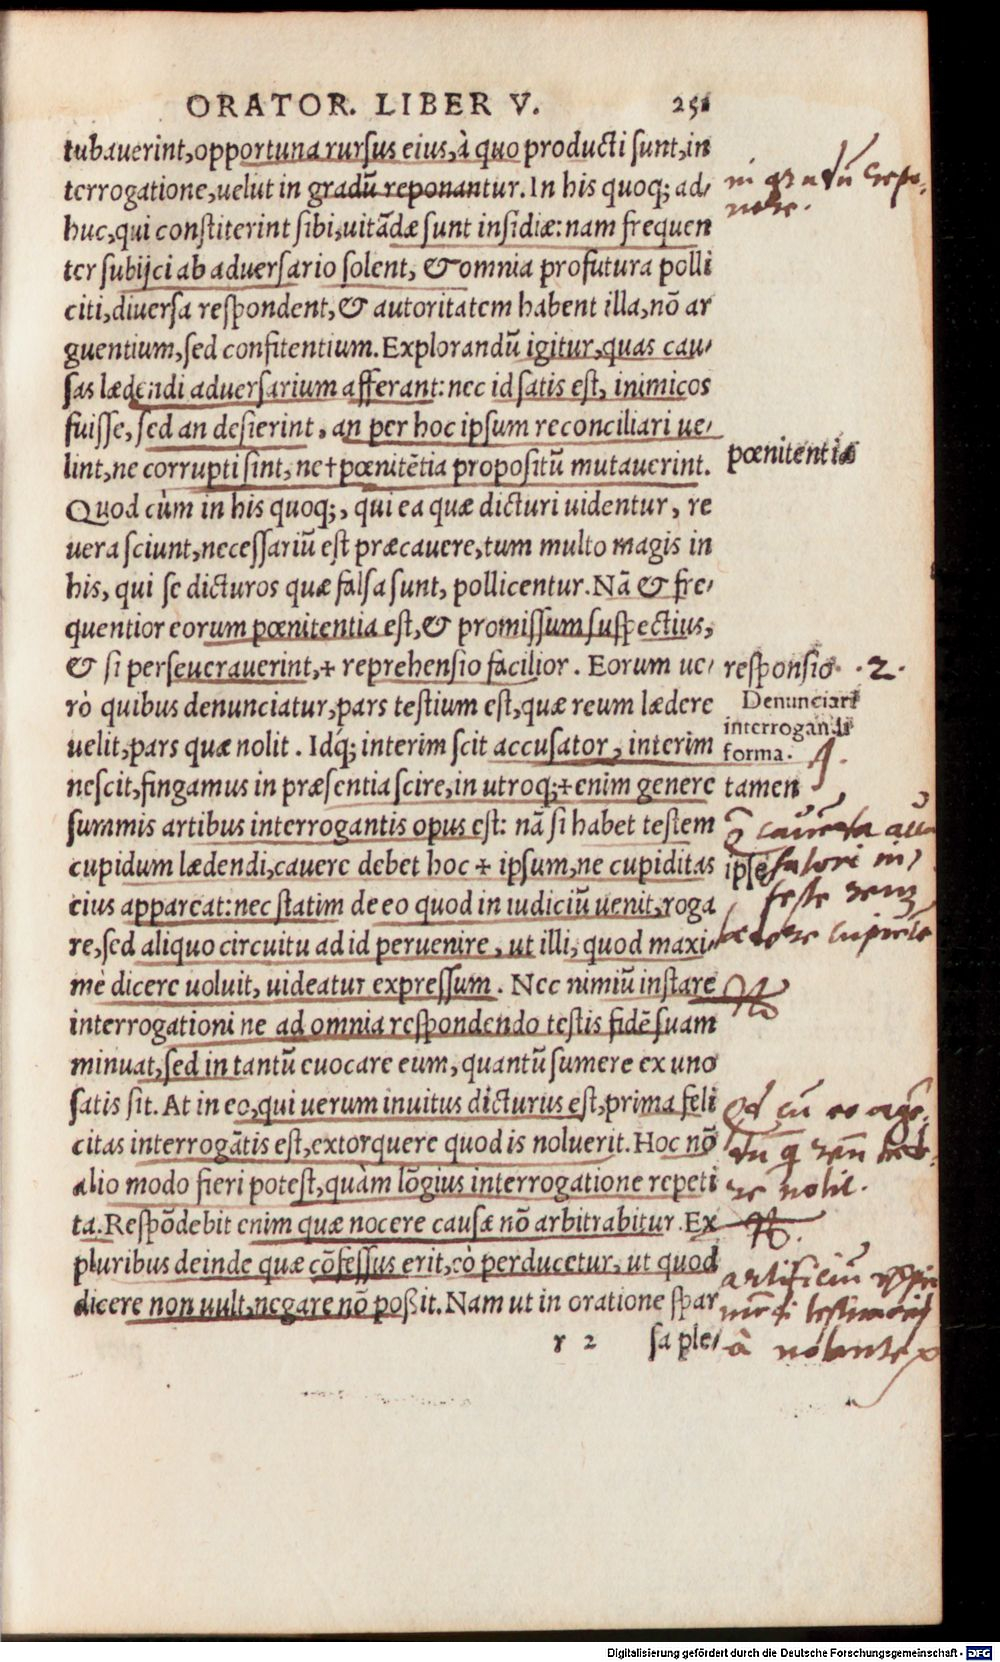 ORATOR. LIBER V. 251
tubauerint, opportuna rursus eius, à quo producti sunt, in
terrogatione, uelut in gradū reponantur. In his quoq; ad/
huc, qui constiterint sibi, uitādæ sunt insidiæ: nam frequen
ter subijci ab aduersario solent, & omnia profutura polli
citi, diuersa respondent, & autoritatem habent illa, nō ar
guentium, sed confitentium. Explorandū igitur, quas cau/
sas lædendi aduersarium afferant: nec id satis est, inimicos
fuisse, sed an desierint, an per hoc ipsum reconciliari ue/
lint, ne corrupti sint, ne † pœnitētia propositū mutauerint.
pœnitentia
Quod cùm in his quoq;, qui ea quæ dicturi uidentur, re
uera sciunt, necessariū est præcauere, tum multo magis in
his, qui se dicturos quæ falsa sunt, pollicentur. Nā & fre/
quentior eorum pœnitentia est, & promissum suspectius,
& si perseuerauerint, + reprehensio facilior. Eorum ue/
responsio. .2.
rò quibus denunciatur, pars testium est, quæ reum lædere
Denunciari
interrogandi
forma.
uelit, pars quæ nolit. Idq́; interim scit accusator, interim
nescit, fingamus in præsentia scire, in utroq; + enim genere
tamen
summis artibus interrogantis opus est: nā si habet testem
cupidum lædendi, cauere debet hoc + ipsum, ne cupiditas
ipse
eius appareat: nec statim de eo quod in iudiciū uenit, roga
re, sed aliquo circuitu ad id peruenire, ut illi, quod maxi/
mè dicere uoluit, uideatur expressum. Nec nimiū instare
interrogationi ne ad omnia respondendo testis fidē suam
minuat, sed in tantū euocare eum, quantū sumere ex uno
satis sit. At in eo, qui uerum inuitus dicturus est, prima feli
citas interrogātis est, extorquere quod is noluerit. Hoc nō
alio modo fieri potest, quàm lōgius interrogatione repeti
ta. Respōdebit enim quæ nocere causæ nō arbitrabitur. Ex
pluribus deinde quæ cōfessus erit, eò perducetur, ut quod
dicere non uult, negare nō poßit. Nam ut in oratione spar
r 2 sa ple/
Digitalisierung gefördert durch die Deutsche Forschungsgemeinschaft - DFG